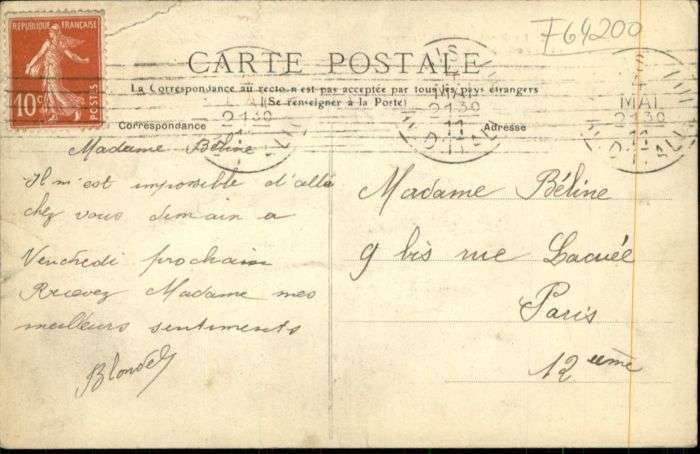 REPUBLIQUE FRANÇAISE
10c
POSTES
F64200
CARTE POSTALE
La Correspondance au recto n'est pas acceptée par tous les pays étrangers
(Se renseigner à la Poste)
Correspondance
Adresse
MAI
21 30
11
Madame Béline
Il m'est impossible d'allé
chez vous demain a
Vendredi prochain
Recevez Madame mes
meilleurs sentiments
Blondel
Madame Béline
9 bis rue Lacuée
Paris
12 eume